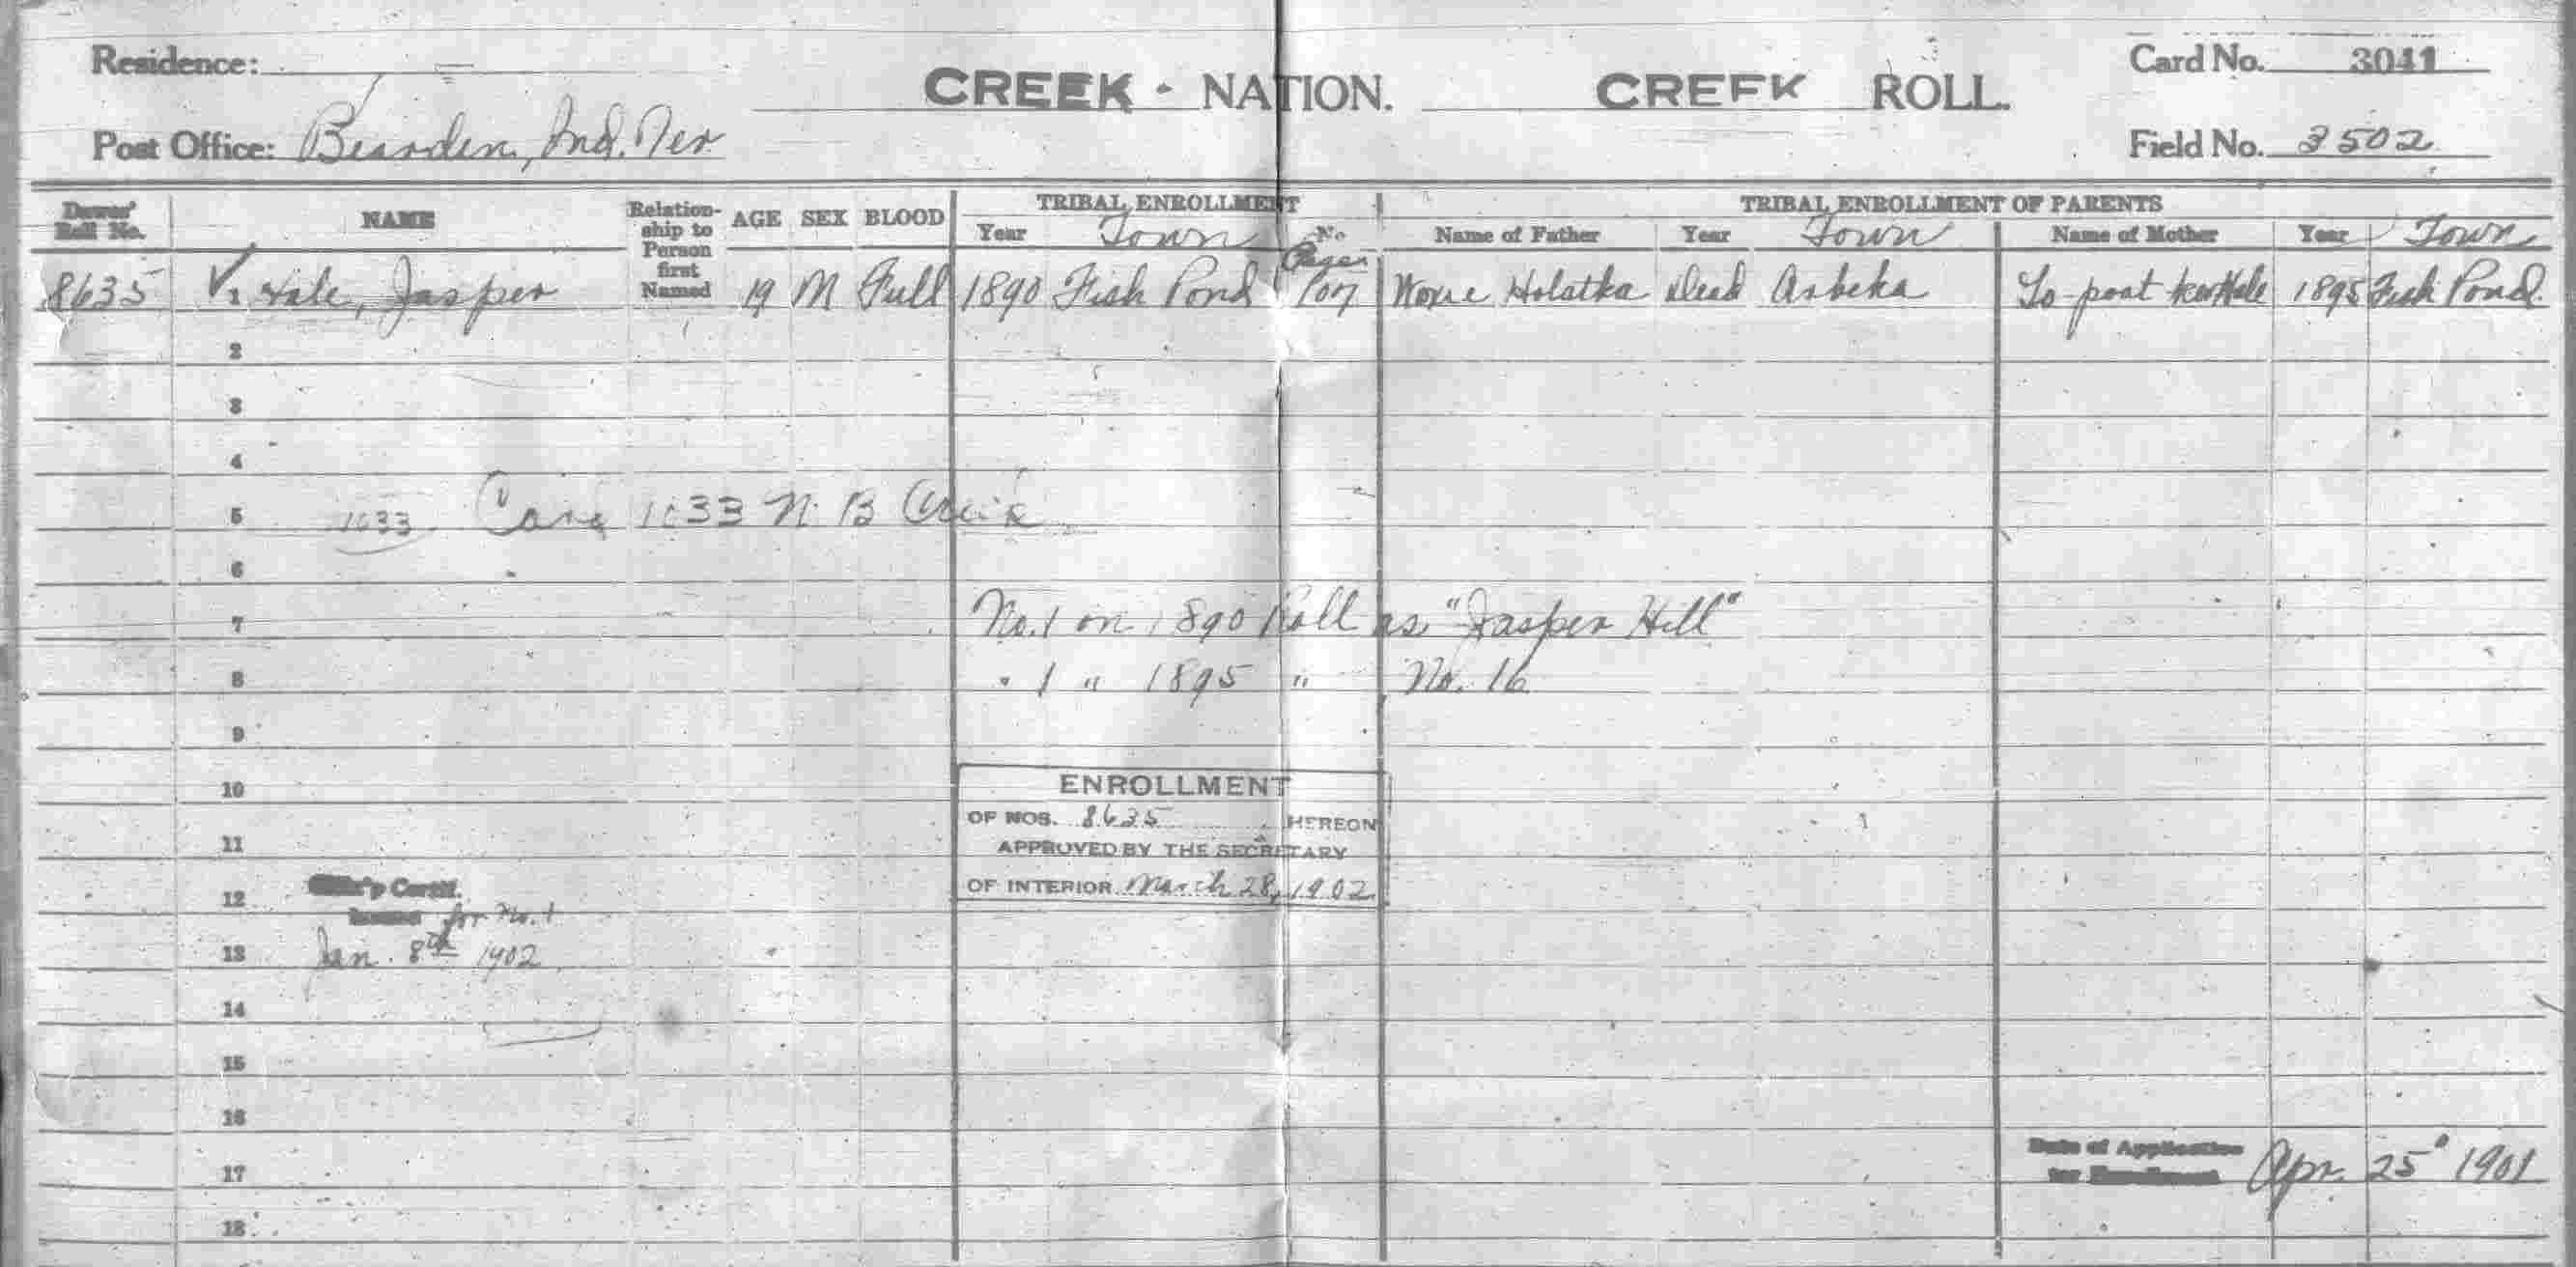 Residence:
CREEK - NATION. CREEK ROLL.
Card No. 3041
Post Office: Bearden, Ind. Ter
Field No. 3502
Dawes' Roll No. NAME Relationship to Person first Named AGE SEX BLOOD TRIBAL ENROLLMENT TRIBAL ENROLLMENT OF PARENTS
Year Town No Page Name of Father Year Town Name of Mother Year Town
8635 √ 1 Hale, Jasper 19 M Full 1890 Fish Pond Dead Arbeka 1895 Fish Pond
2
3
4
5 1033 Card 1033 N. B Creek
6
7 No. 1 on 1890 Roll as "Jasper Hill"
8 " 1 " 1895 " No. 16
9
10 ENROLLMENT
OF NOS. 8635 HEREON
11 APPROVED BY THE SECRETARY
12 OF INTERIOR March 28, 1902
Certif.
Issued for No. 1
13 Jan. 8th 1902
14
15
16
Date of Application for Enrollment Apr. 25 1901
17
18